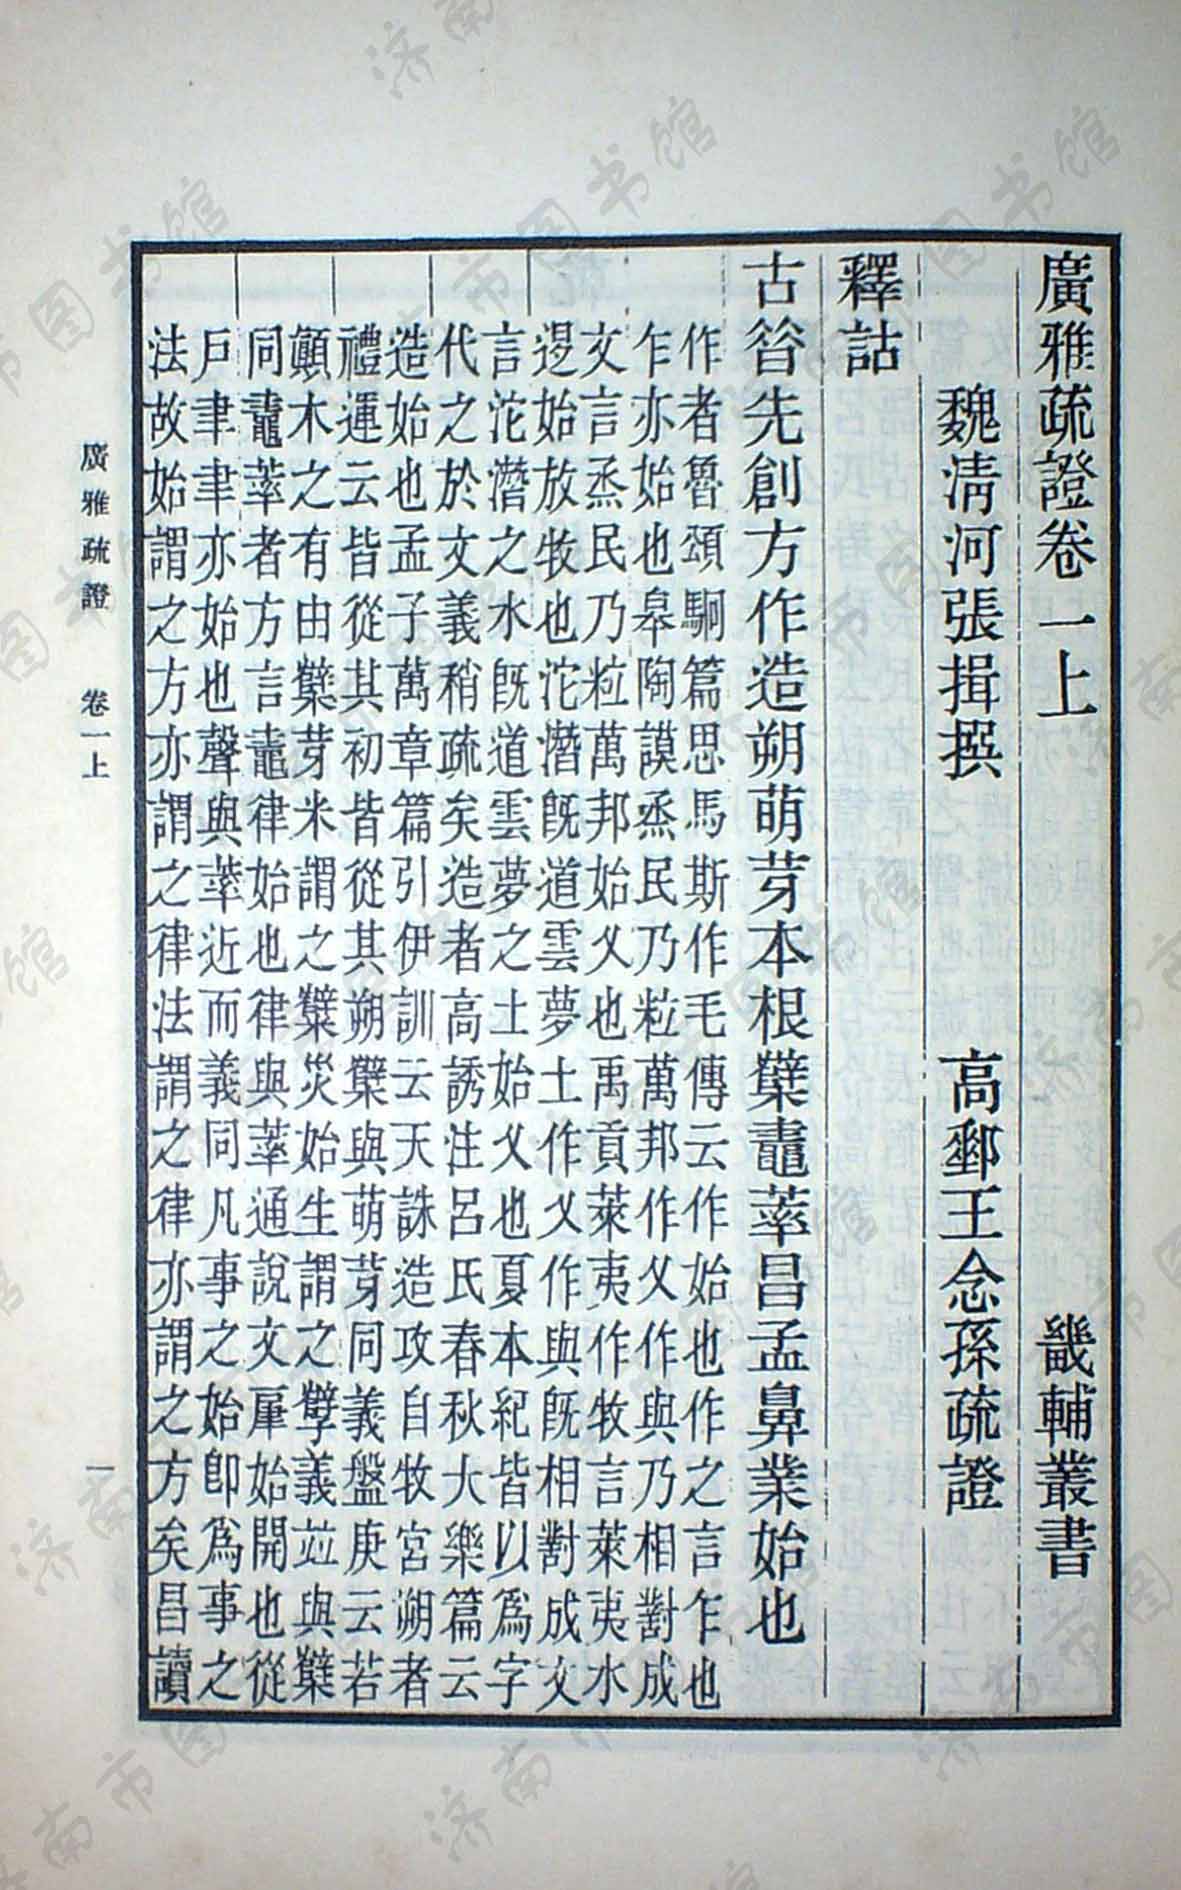 廣雅疏證卷一上　畿輔叢書
魏清河張揖撰　高郵王念孫疏證
釋詁
古昚先創方作造朔萌芽本根櫱鼃䔹昌孟鼻業始也
作者魯頌駉篇思馬斯作毛傳云作始也作之言乍也
乍亦始也皋陶謨烝民乃粒萬邦作乂作與乃相對成
文言烝民乃粒萬邦始乂也禹貢萊夷作牧言萊夷水
退始放牧也沱潛既道雲夢土作乂作與既相對成文
言沱潛之水既道雲夢之土始乂也夏本紀皆以為字
代之於文義稍疏矣造者高誘注呂氏春秋大樂篇云
造始也孟子萬章篇引伊訓云天誅造攻自牧宮朔者
禮運云皆從其初皆從其朔櫱與萌芽同義盤庚云若
顛木之有由櫱芽米謂之糱災始生謂之孼義竝與櫱
同鼃䔹者方言鼃律始也律與䔹通說文肁始開也從
戶聿聿亦始也聲與䔹近而義同凡事之始即為事之
法故始謂之方亦謂之律法謂之律亦謂之方矣昌讀
廣雅疏證　卷一上　一
济南市图书馆